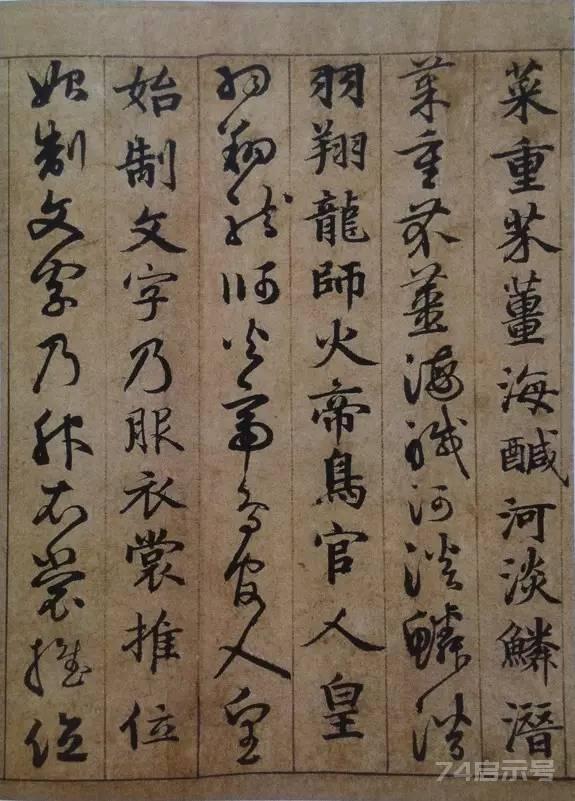 菜重芥薑海醎河淡鱗潛
菜重芥薑海醎河淡鱗潛
羽翔龍師火帝鳥官人皇
羽翔龍師火帝鳥官人皇
始制文字乃服衣裳推位
始制文字乃服衣裳推位
74启示号